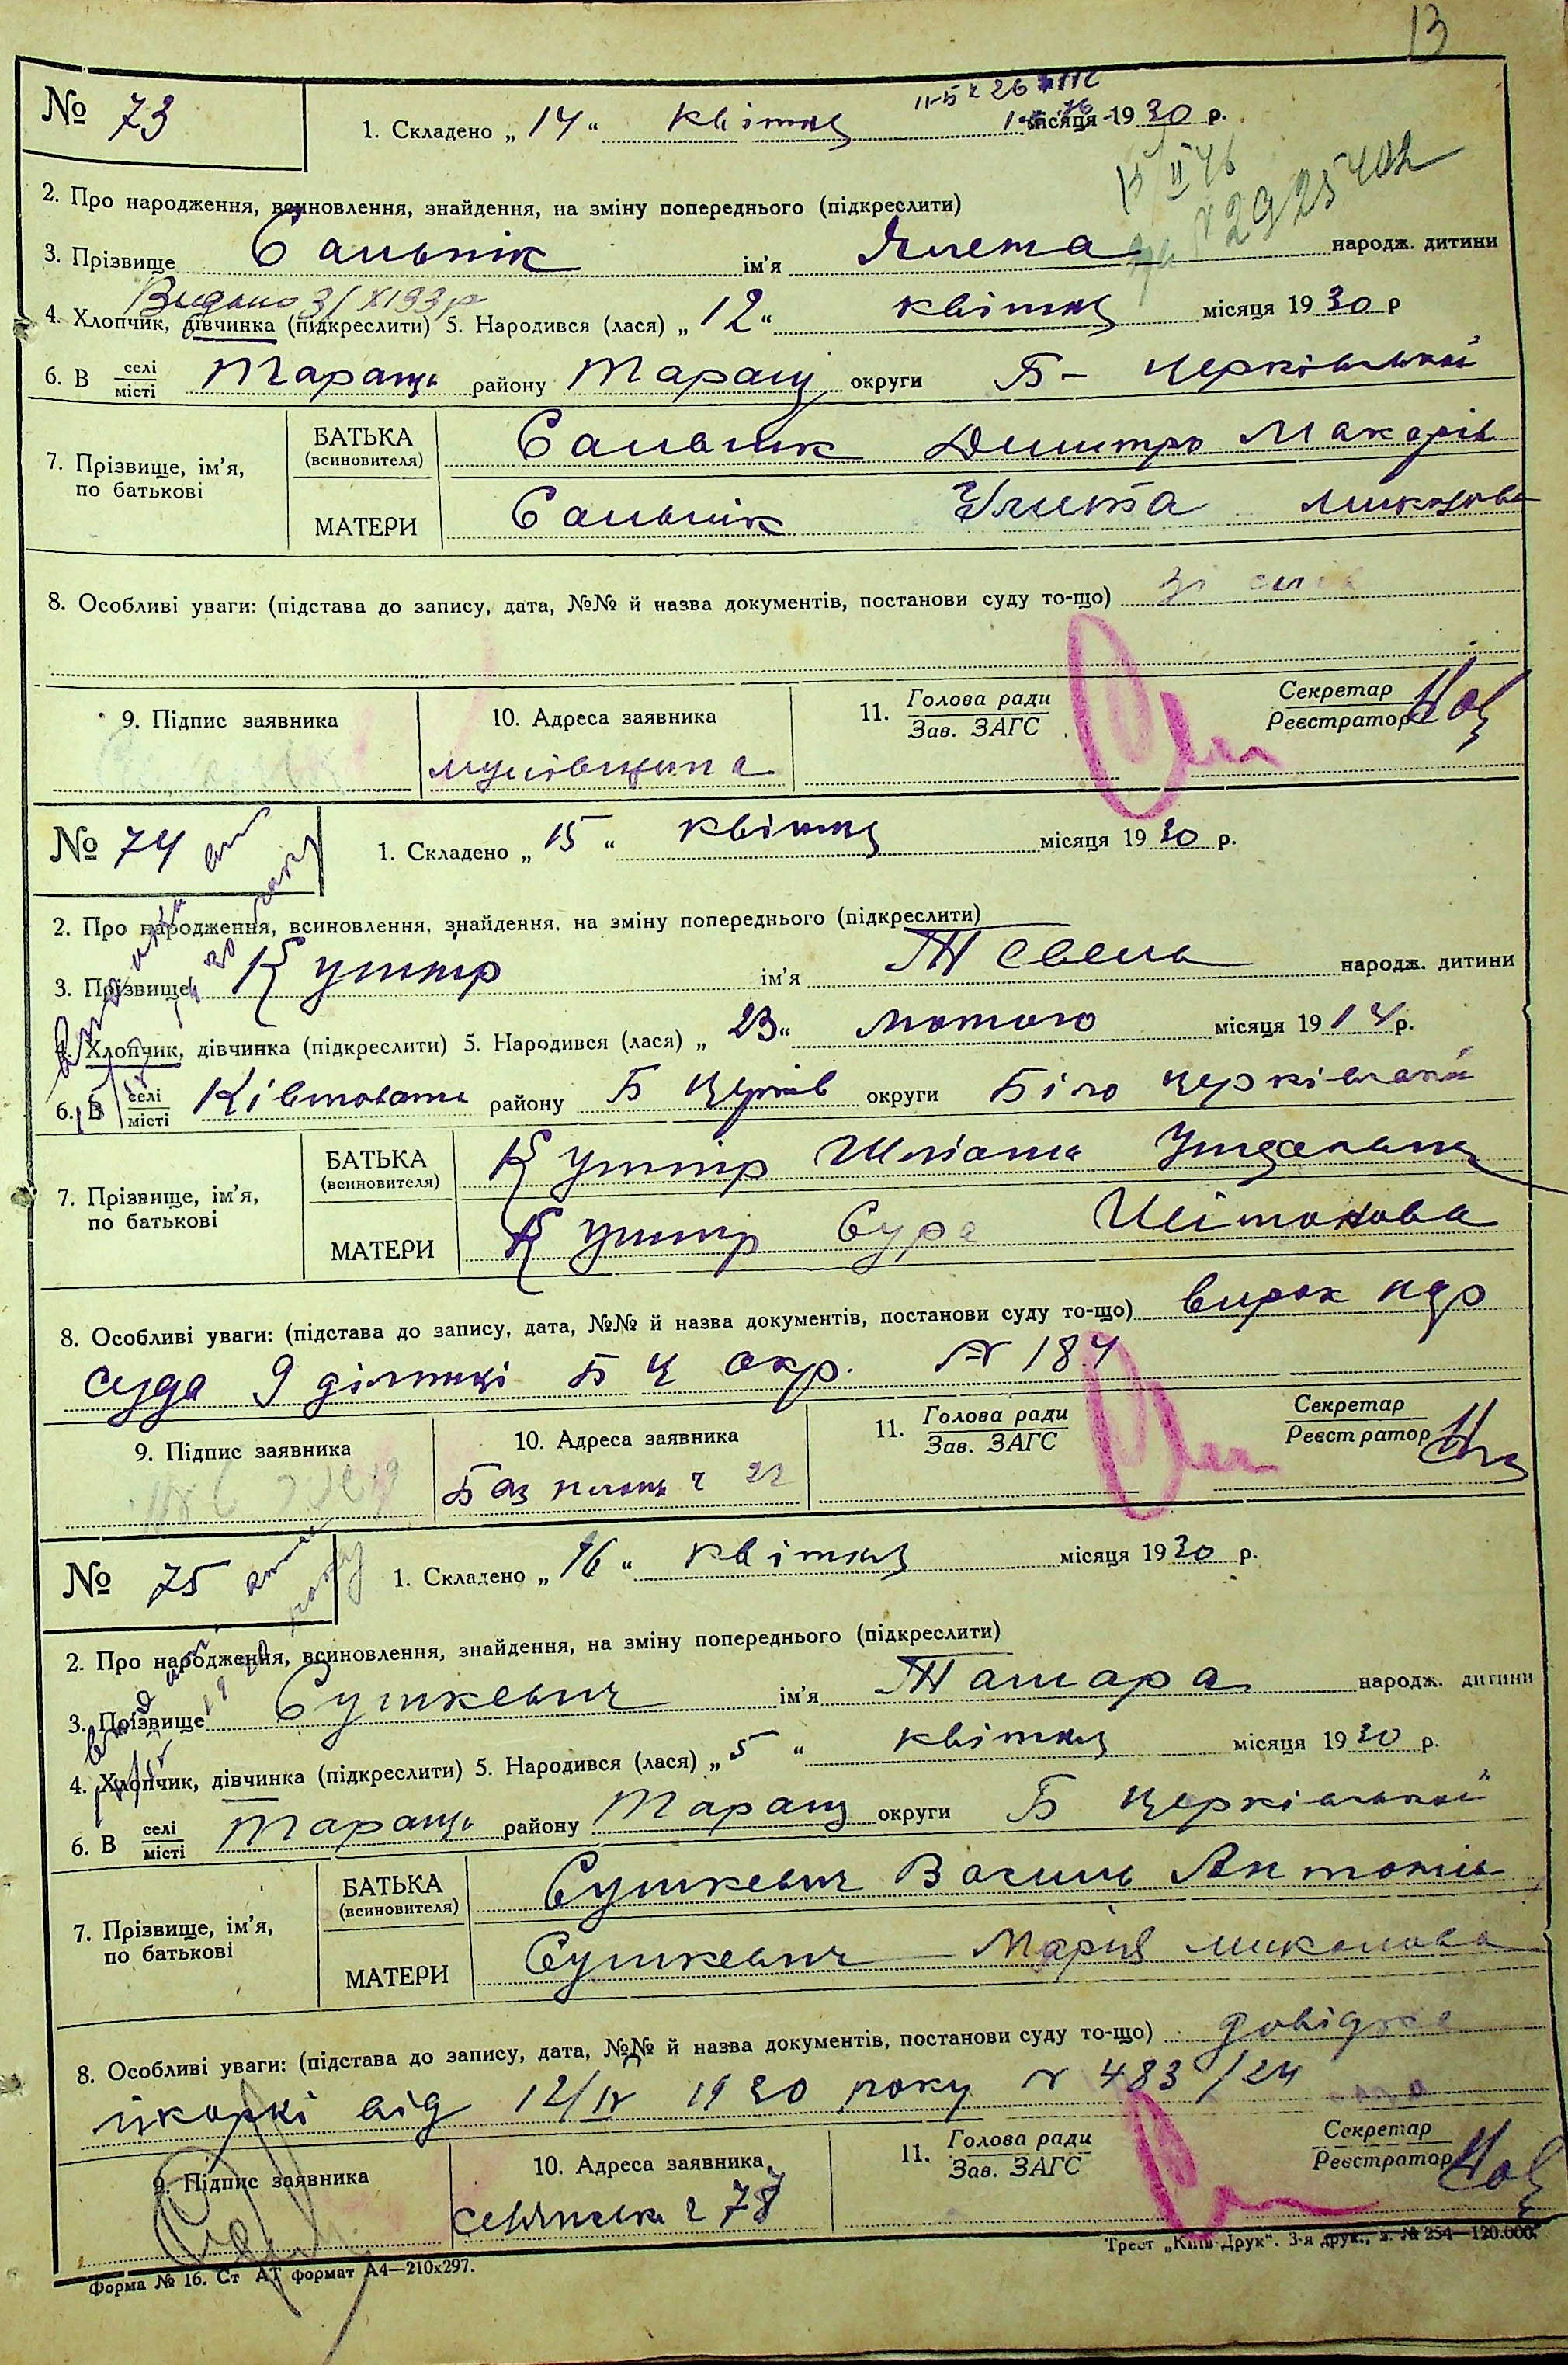 13
№ 73
1. Складено „ 14 “ квітня місяця 1930 р.
2. Про народження, всиновлення, знайдення, на зміну попереднього (підкреслити)
3. Прізвище Сальнік ім'я народж. дитини
Видано
4. Хлопчик, дівчинка (підкреслити) 5. Народився (лася) „ 12 “ квітня місяця 1930 р
6. В селі/місті Таращі району Таращ округи Б- церківської
7. Прізвище, ім'я, по батькові
БАТЬКА (всиновителя) Сальнік Дмитро Макарів
МАТЕРИ Сальнік Улита
8. Особливі уваги: (підстава до запису, дата, №№ й назва документів, постанови суду то-що) зі слів
9. Підпис заявника 10. Адреса заявника 11. Голова ради/Зав. ЗАГС Секретар/Реєстратор
№ 74
1. Складено „ 15 “ квітня місяця 1930 р.
2. Про народження, всиновлення, знайдення, на зміну попереднього (підкреслити)
3. Прізвище Кушнір ім'я Тевель народж. дитини
4. Хлопчик, дівчинка (підкреслити) 5. Народився (лася) „ 23 “ лютого місяця 1914 р.
6. В селі/місті району Б Церків округи Біло церківської
7. Прізвище, ім'я, по батькові
БАТЬКА (всиновителя) Кушнір
МАТЕРИ Кушнір Сура
8. Особливі уваги: (підстава до запису, дата, №№ й назва документів, постанови суду то-що) вирок нар
суда 9 дільниці Б Ц окр. № 184
9. Підпис заявника 10. Адреса заявника 11. Голова ради/Зав. ЗАГС Секретар/Реєстратор
22
№ 75
1. Складено „ 16 “ квітня місяця 1930 р.
2. Про народження, всиновлення, знайдення, на зміну попереднього (підкреслити)
3. Прізвище Сушкевич ім'я Тамара народж. дитини
4. Хлопчик, дівчинка (підкреслити) 5. Народився (лася) „ 5 “ квітня місяця 1930 р.
6. В селі/місті Таращі району Таращ округи Б церківської
7. Прізвище, ім'я, по батькові
БАТЬКА (всиновителя) Сушкевич Василь Антонів
МАТЕРИ Сушкевич Марія Миколова
8. Особливі уваги: (підстава до запису, дата, №№ й назва документів, постанови суду то-що) довідка
від 12/IV 1930 року № 483/24
9. Підпис заявника 10. Адреса заявника 11. Голова ради/Зав. ЗАГС Секретар/Реєстратор
78
Форма № 16. Ст АТ формат А4—210х297. Трест „Київ-Друк“. 3-я друк., з. № 254—120.000.